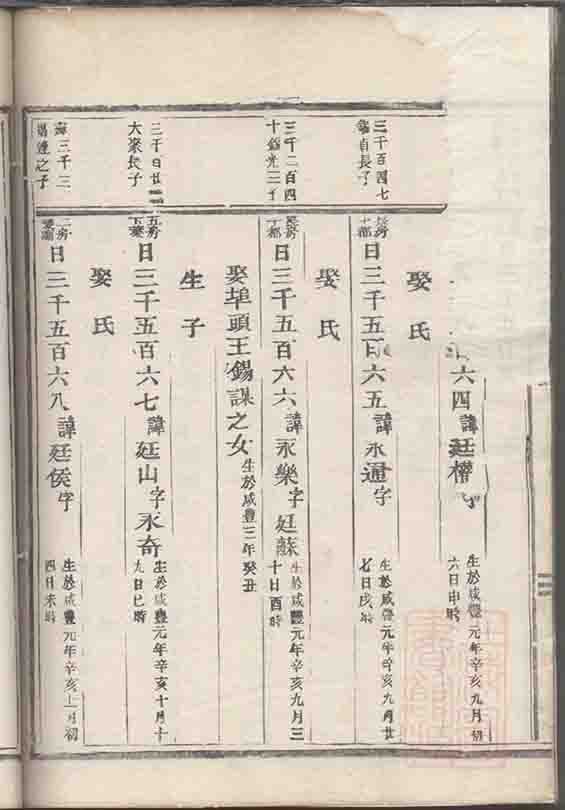 六四諱廷權字
生於咸豐元年辛亥九月初
六日申時
娶氏
三千百四七
貞長子
長房
十都
日三千五百六五諱永通字
生於咸豐元年辛亥九月廿
七日戌時
娶氏
三千二百四
十
長房
十都
日三千五百六六諱永樂字廷蘇
生於咸豐元年辛亥九月三
十日酉時
娶埠頭王錫謀之女
生於咸豐三年癸丑
生子
三千百廿
大來長子
五房
日三千五百六七諱廷山字永奇
生於咸豐元年辛亥十月十
九日巳時
娶氏
三千三
之子
二房
日三千五百六八諱廷侯字
生於咸豐元年辛亥十一月初
四日未時